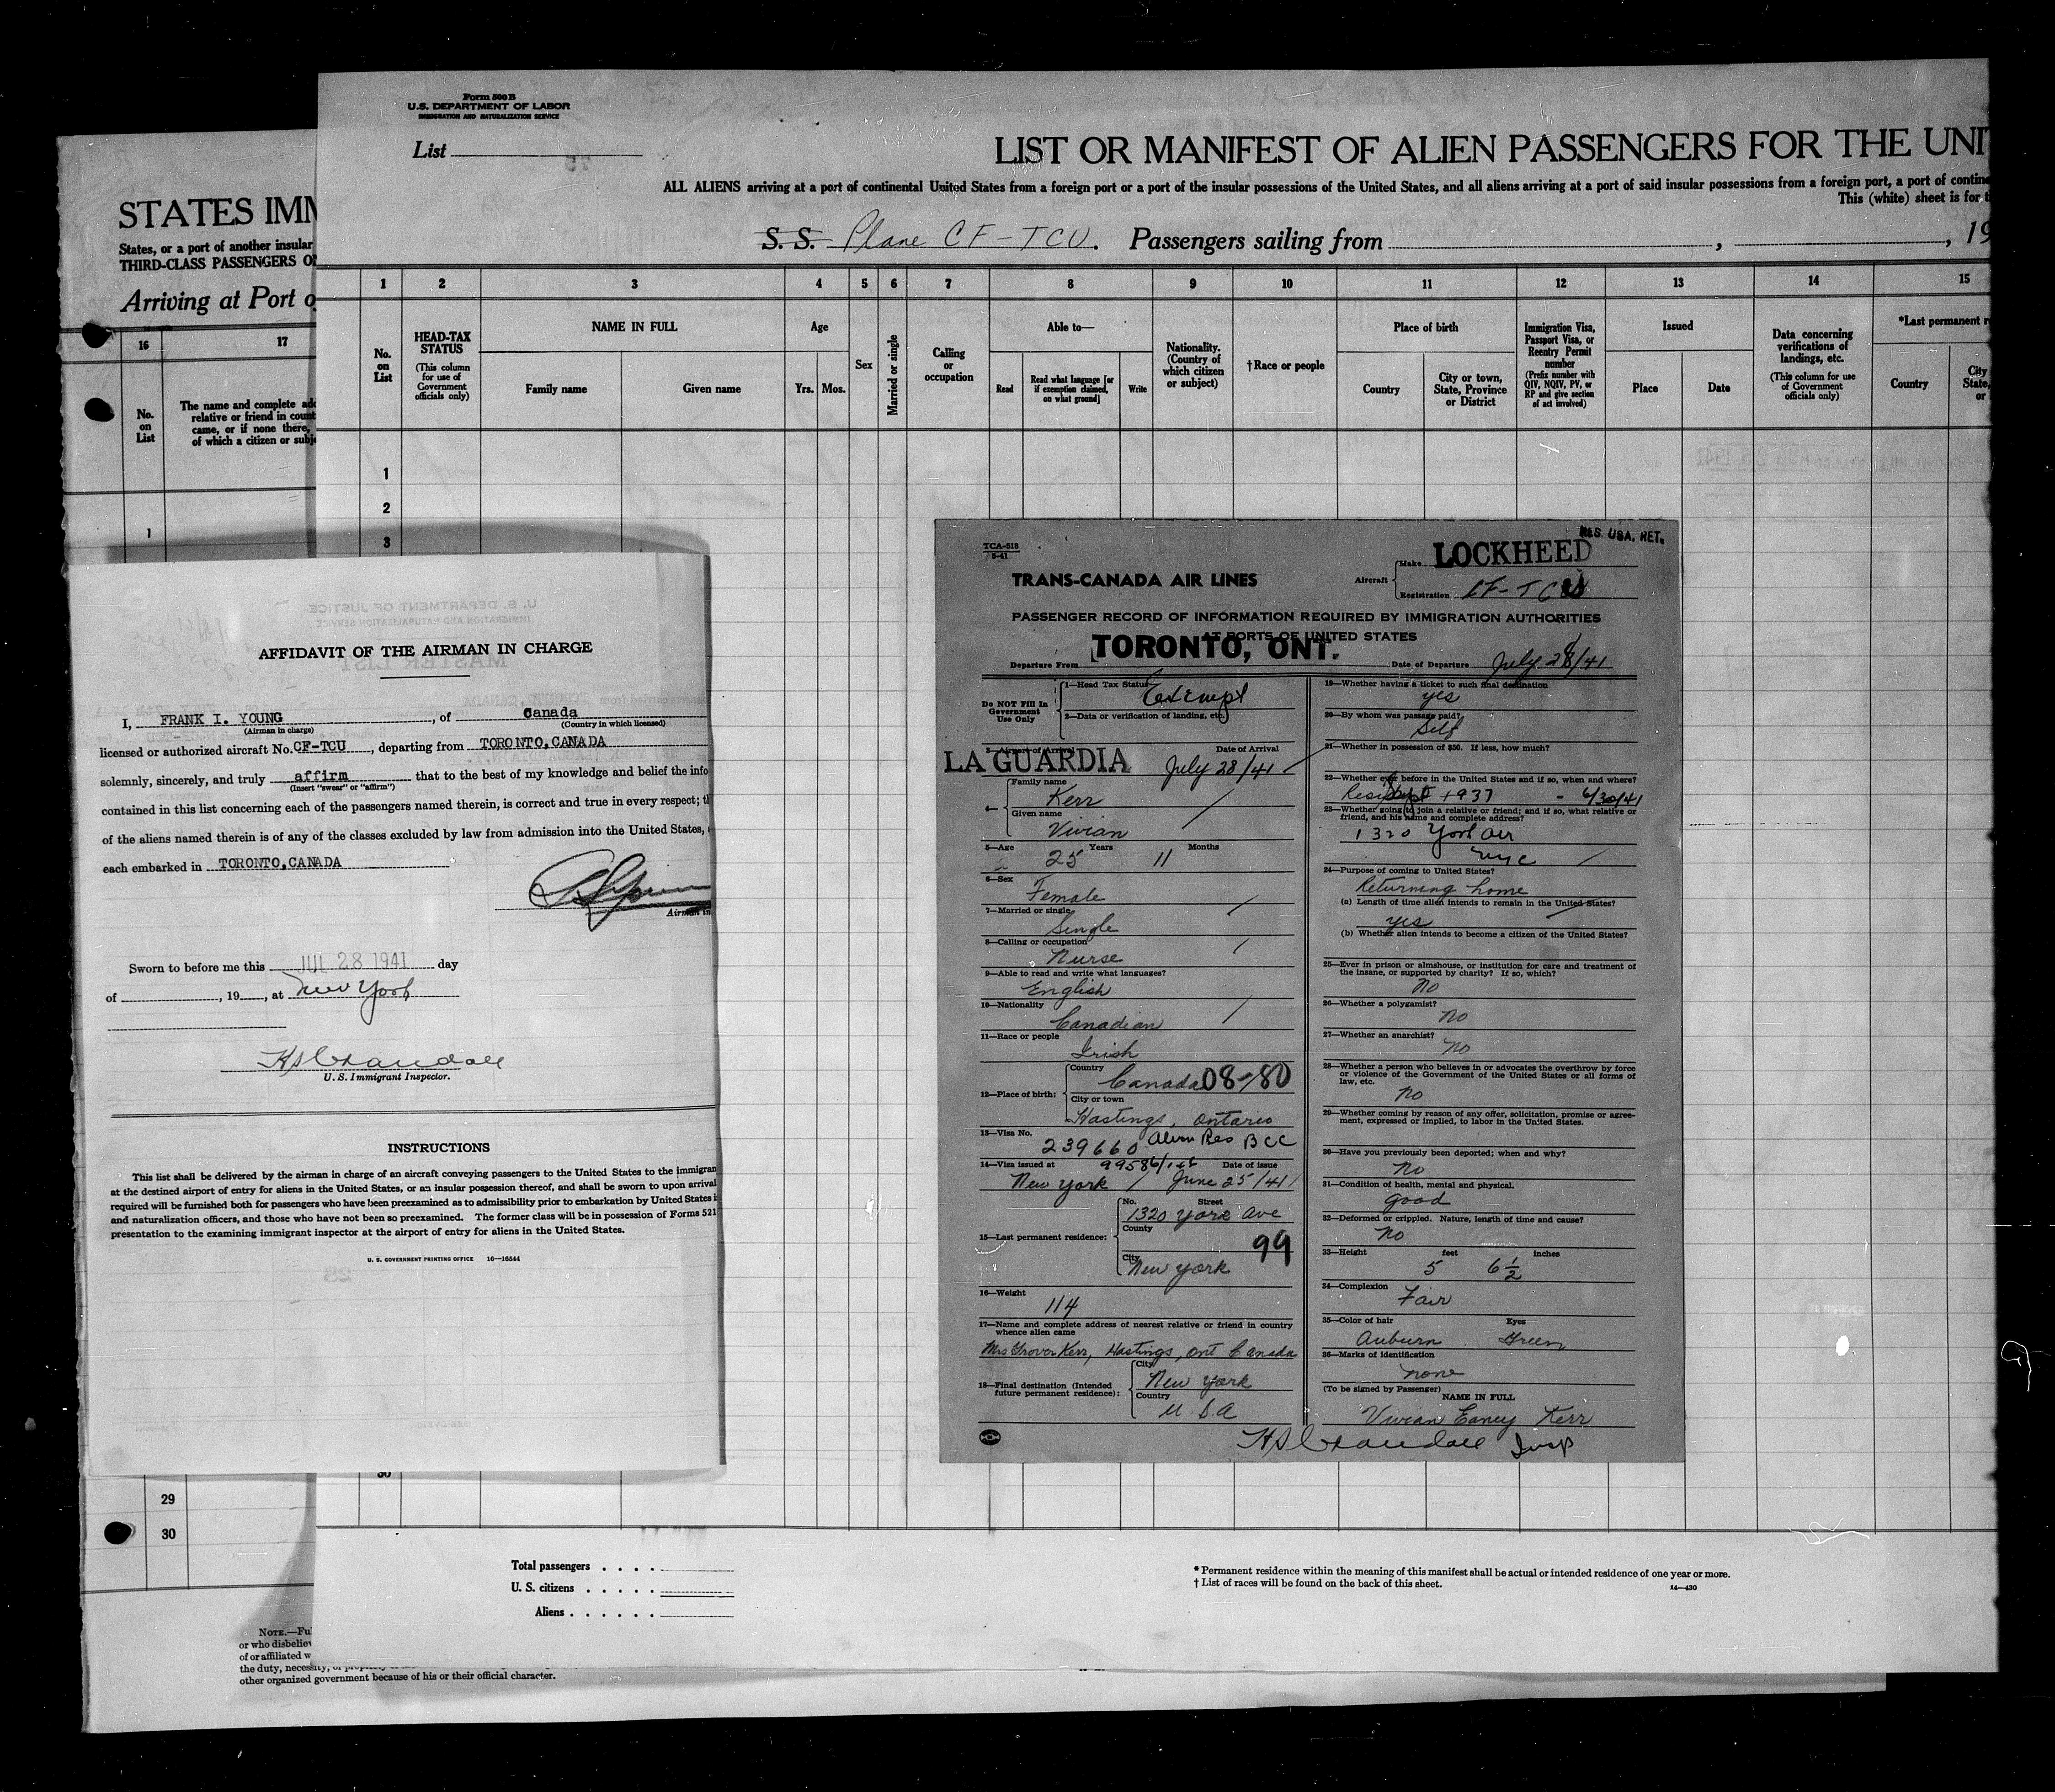 Form 500 B
U.S. DEPARTMENT OF LABOR
IMMIGRATION AND NATURALIZATION SERVICE
List
LIST OR MANIFEST OF ALIEN PASSENGERS FOR THE UNI
ALL ALIENS arriving at a port of continental United States from a foreign port or a port of the insular possessions of the United States, and all aliens arriving at a port of said insular possessions from a foreign port, a port of contine
This (white) sheet is for t
S. S. Plane CF-TCU. Passengers sailing from , , 19
1 2 3 4 5 6 7 8 9 10 11 12 13 14 15
No. on List
HEAD-TAX STATUS
(This column for use of Government officials only)
NAME IN FULL
Family name
Given name
Age
Yrs. Mos.
Sex
Married or single
Calling or occupation
Able to—
Read
Read what language [or if exemption claimed, on what ground]
Write
Nationality. (Country of which citizen or subject)
†Race or people
Place of birth
Country
City or town, State, Province or District
Immigration Visa, Passport Visa, or Reentry Permit number
(Prefix number with QIV, NQIV, PV, or RP and give section of act involved)
Issued
Place
Date
Data concerning verifications of landings, etc.
(This column for use of Government officials only)
*Last permanent r
Country
City
State,
or
1
2
3
30
Total passengers . . . .
U. S. citizens . . . . .
Aliens . . . . . .
* Permanent residence within the meaning of this manifest shall be actual or intended residence of one year or more.
† List of races will be found on the back of this sheet.
14—430
STATES IMM
States, or a port of another insular
THIRD-CLASS PASSENGERS O
Arriving at Port o
16 17
No. on List
The name and complete add
relative or friend in count
came, or if none there,
of which a citizen or subj
1
29
30
NOTE.—Fu
or who disbeliev
of or affiliated w
the duty, necessity,
other organized government because of his or their official character.
AFFIDAVIT OF THE AIRMAN IN CHARGE
I, FRANK I. YOUNG , of Canada
(Airman in charge) (Country in which licensed)
licensed or authorized aircraft No. CF-TCU , departing from TORONTO,CANADA
solemnly, sincerely, and truly affirm that to the best of my knowledge and belief the info
(Insert "swear" or "affirm")
contained in this list concerning each of the passengers named therein, is correct and true in every respect; th
of the aliens named therein is of any of the classes excluded by law from admission into the United States,
each embarked in TORONTO,CANADA
Airman in
Sworn to before me this JUL 28 1941 day
of , 19 , at New York
U. S. Immigrant Inspector.
INSTRUCTIONS
This list shall be delivered by the airman in charge of an aircraft conveying passengers to the United States to the immigran
at the destined airport of entry for aliens in the United States, or an insular possession thereof, and shall be sworn to upon arrival
required will be furnished both for passengers who have been preexamined as to admissibility prior to embarkation by United States i
and naturalization officers, and those who have not been so preexamined. The former class will be in possession of Forms 521
presentation to the examining immigrant inspector at the airport of entry for aliens in the United States.
U. S. GOVERNMENT PRINTING OFFICE 16—16544
TCA-518
5-41
USA. RET.
TRANS-CANADA AIR LINES
Aircraft
Make LOCKHEED
Registration CF-TCU
PASSENGER RECORD OF INFORMATION REQUIRED BY IMMIGRATION AUTHORITIES
AT PORTS OF UNITED STATES
Departure From TORONTO, ONT. Date of Departure July 28/41
Do NOT Fill In Government Use Only
1—Head Tax Status Exempt
2—Data or verification of landing, etc.
3—Airport of Arrival LA GUARDIA Date of Arrival July 28/41
4— Family name Kerr
Given name Vivian
5—Age 25 Years 11 Months
6—Sex Female
7—Married or single Single
8—Calling or occupation Nurse
9—Able to read and write what languages? English
10—Nationality Canadian
11—Race or people Irish
12—Place of birth: Country Canada 08-/80
City or town Hastings, Ontario
13—Visa No. 239660 Alien Res BCC
14—Visa issued at New York Date of issue June 25/41
15—Last permanent residence: No. Street 1320 York Ave
County 99
City New York
16—Weight 114
17—Name and complete address of nearest relative or friend in country whence alien came
Mrs Grover Kerr, Hastings, Ont Canada
18—Final destination (Intended future permanent residence): City New York
Country U.S.A
19—Whether having a ticket to such final destination yes
20—By whom was passage paid? Self
21—Whether in possession of $50. If less, how much?
22—Whether ever before in the United States and if so, when and where?
Sept 1937 - 6/30/41
23—Whether going to join a relative or friend; and if so, what relative or friend, and his name and complete address?
1320 York Ave
NYC
24—Purpose of coming to United States? Returning home
(a) Length of time alien intends to remain in the United States?
yes
(b) Whether alien intends to become a citizen of the United States?
25—Ever in prison or almshouse, or institution for care and treatment of the insane, or supported by charity? If so, which?
No
26—Whether a polygamist? No
27—Whether an anarchist? No
28—Whether a person who believes in or advocates the overthrow by force or violence of the Government of the United States or all forms of law, etc.
No
29—Whether coming by reason of any offer, solicitation, promise or agreement, expressed or implied, to labor in the United States.
30—Have you previously been deported; when and why? No
31—Condition of health, mental and physical. good
32—Deformed or crippled. Nature, length of time and cause? No
33—Height 5 feet 6 1/2 inches
34—Complexion Fair
35—Color of hair Auburn Eyes Green
36—Marks of identification none
(To be signed by Passenger) NAME IN FULL
Vivian Kerr
Insp